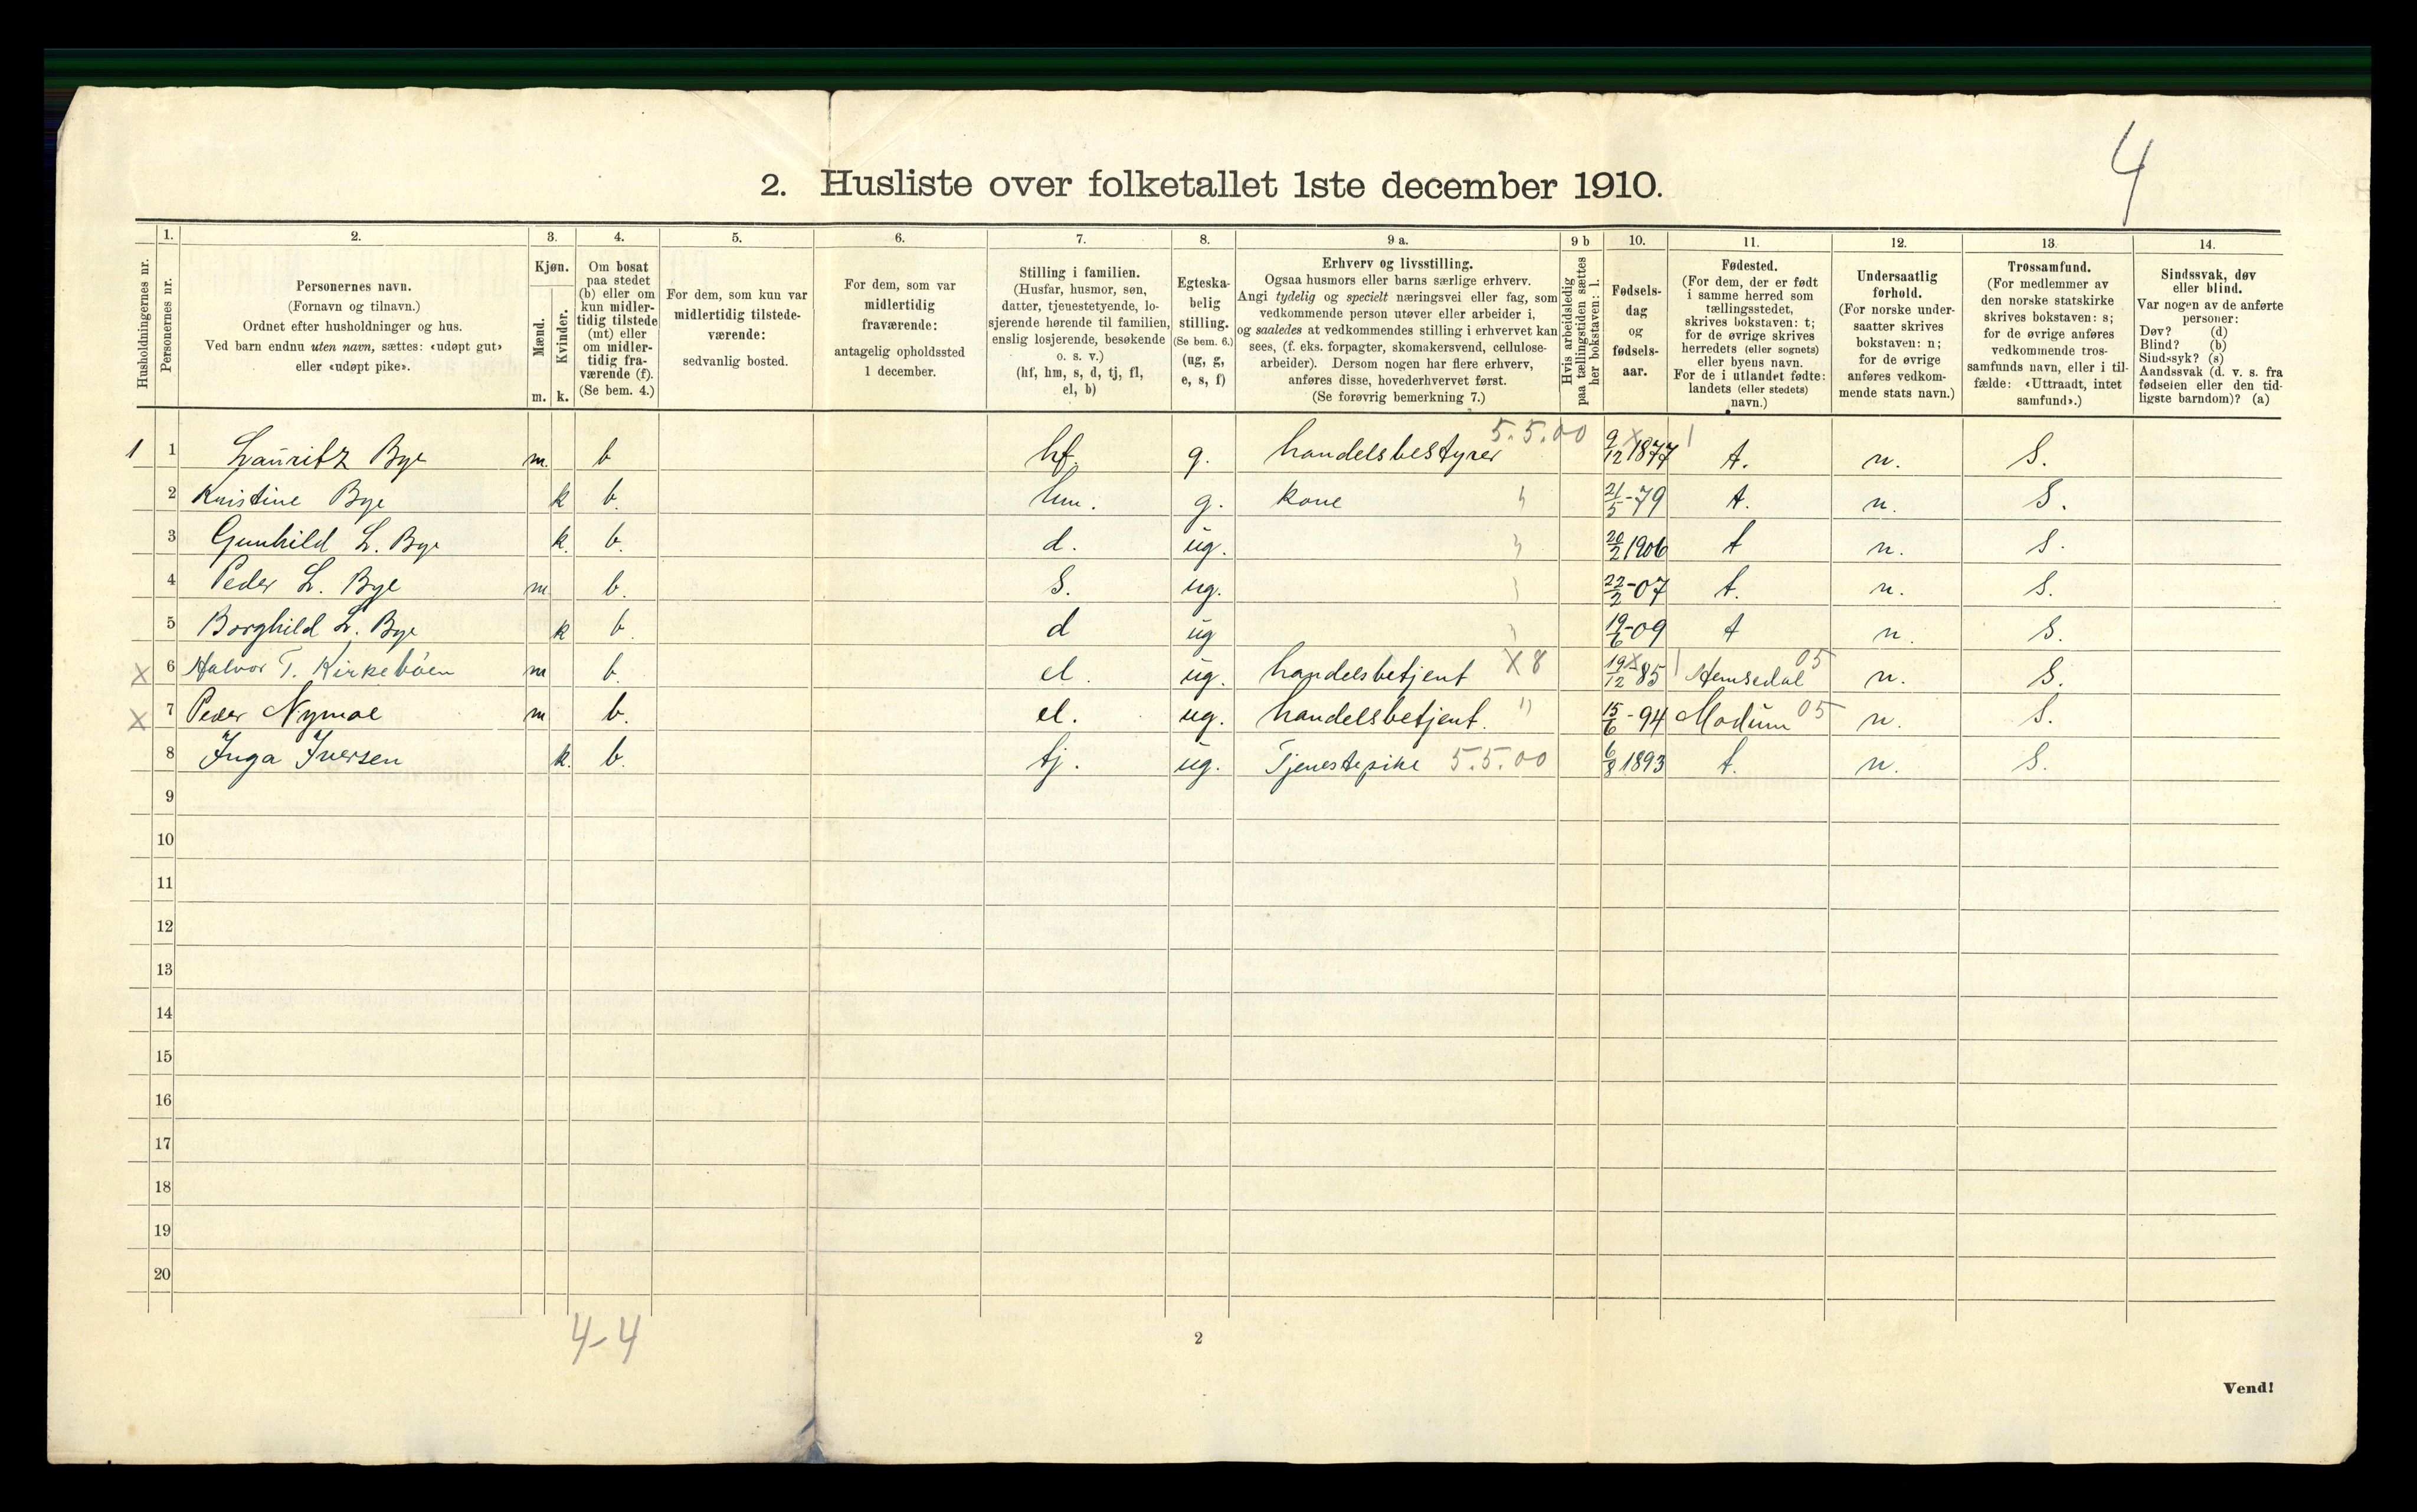 4
2. Husliste over folketallet 1ste december 1910.
Husholdningernes nr.
1.
Personernes nr.
2.
Personernes navn.
(Fornavn og tilnavn.)
Ordnet efter husholdninger og hus.
Ved barn endnu uten navn, sættes: «udøpt gut»
eller «udøpt pike».
3.
Kjøn.
Mænd.
Kvinder.
m. k.
4.
Om bosat
paa stedet
(b) eller om
kun midler-
tidig tilstede
(mt) eller
om midler-
tidig fra-
værende (f).
(Se bem. 4.)
5.
For dem, som kun var
midlertidig tilstede-
værende:
sedvanlig bosted.
6.
For dem, som var
midlertidig
fraværende:
antagelig opholdssted
1 december.
7.
Stilling i familien.
(Husfar, husmor, søn,
datter, tjenestetyende, lo-
sjerende hørende til familien,
enslig losjerende, besøkende
o. s. v.)
(hf, hm, s, d, tj, fl,
el, b)
8.
Egteska-
belig
stilling.
(Se bem. 6.)
(ug, g,
e, s, f)
9 a.
Erhverv og livsstilling.
Ogsaa husmors eller barns særlige erhverv.
Angi tydelig og specielt næringsvei eller fag, som
vedkommende person utøver eller arbeider i,
og saaledes at vedkommendes stilling i erhvervet kan
sees, (f. eks. forpagter, skomakersvend, cellulose-
arbeider). Dersom nogen har flere erhverv,
anføres disse, hovederhvervet først.
(Se forøvrig bemerkning 7.)
9 b
Hvis arbeidsledig
paa tællingstiden sættes
her bokstaven: l.
10.
Fødsels-
dag
og
fødsels-
aar.
11.
Fødested.
(For dem, der er født
i samme herred som
tællingsstedet,
skrives bokstaven: t;
for de øvrige skrives
herredets (eller sognets)
eller byens navn.
For de i utlandet fødte:
landets (eller stedets)
navn.)
12.
Undersaatlig
forhold.
(For norske under-
saatter skrives
bokstaven: n;
for de øvrige
anføres vedkom-
mende stats navn.)
13.
Trossamfund.
(For medlemmer av
den norske statskirke
skrives bokstaven: s;
for de øvrige anføres
vedkommende tros-
samfunds navn, eller i til-
fælde: «Uttraadt, intet
samfund».)
14.
Sindssvak, døv
eller blind.
Var nogen av de anførte
personer:
Døv? (d)
Blind? (b)
Sindssyk? (s)
Aandssvak (d. v. s. fra
fødselen eller den tid-
ligste barndom)? (a)
1 1 Lauritz Bye m. b hf. g. handelsbestyrer 5.5.00 9/12 1877 t. n. S.
2 Kristine Bye k b. hm. g. kone 21/5 -79 t. n. S.
3 Gunhild L. Bye k. b. d. ug. 20/2 1906 t n. S.
4 Peder L. Bye m b. S. ug. 22/2 -07 t. n. S.
5 Borghild L. Bye k b. d ug 19/6 -09 t n. S.
X 6 Halvor T. Kirkebøen m b. el. ug. handelsbetjent X8 19/12 85 Hemsedal 05 n. S.
X 7 Peder Nymoe m b. el. ug. handelsbetjent. " 15/6 -94 Modum 05 n. S.
8 Inga Iversen k. b. tj. ug. Tjenestepike 5.5.00 6/8 1893 t. n. S.
9
10
11
12
13
14
15
16
17
18
19
20
4-4
2
Vend!